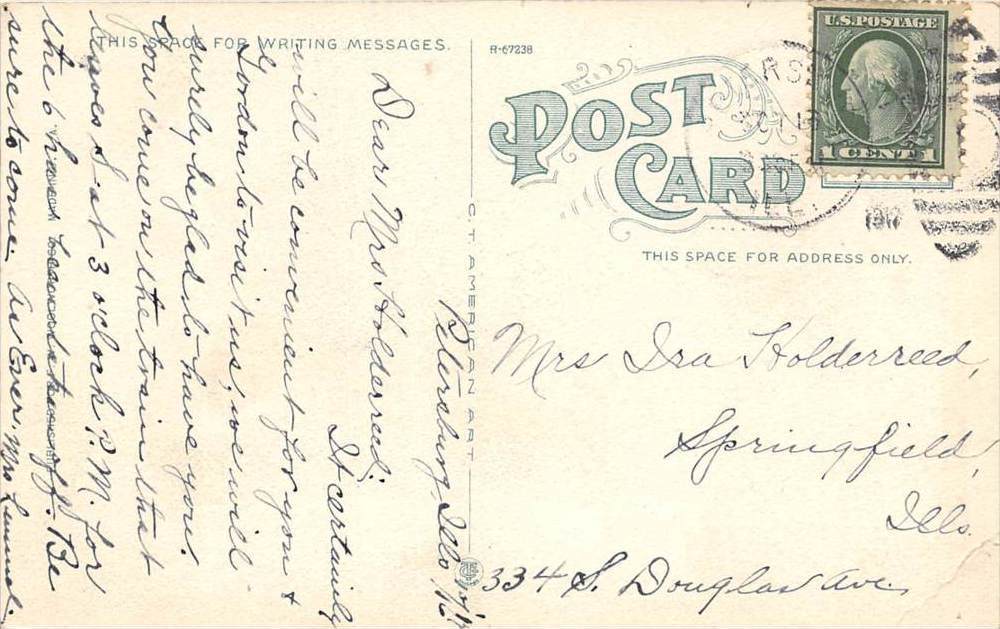 THIS SPACE FOR WRITING MESSAGES.
R-67238
POST CARD
U.S. POSTAGE
1 CENT 1
1917
THIS SPACE FOR ADDRESS ONLY.
C. T. AMERICAN ART
Petersburg, Ills
Dear Mrs Holderread;
It certainly
will be convenient for you &
Gordon to visit us, we will
surely be glad to have you.
You come on the train that
leaves S- at 3 o'clock P.M. for
the 6
Be
sure to come. As Ever, Mrs
Mrs Ira Holderreed,
Springfield,
Ills.
334 S. Douglas Ave.